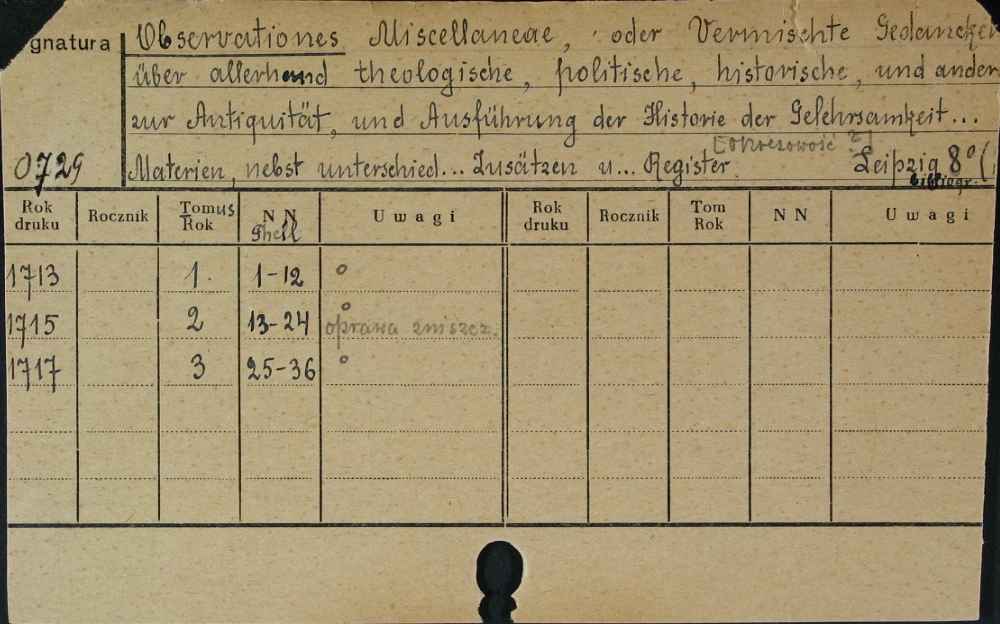 gnatura Observationes Miscellaneae, oder Vermischte Gedancken
über allerhand theologische, politische, historische, und ander
zur Antiquität, und Ausführung der Historie der Gelehrsamkeit...
[okresowość ?]
0729 Materien, nebst unterschied... Zusätzen u... Register. Leipzig 8° (
bibliogr.
Rok druku Rocznik Tomus Rok NN Theil Uwagi Rok druku Rocznik Tom Rok NN Uwagi
1713 1. 1-12 °
1715 2 13-24 ° oprawa zniszcz.
1717 3 25-36 °